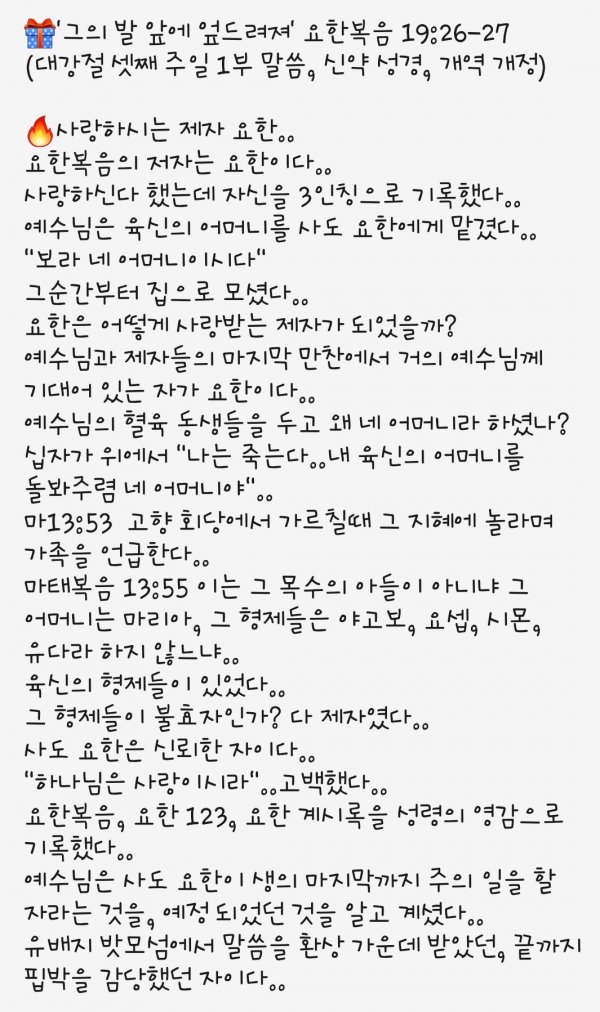 🎁'그의 발 앞에 엎드려져' 요한복음 19:26-27
(대강절 셋째 주일 1부 말씀, 신약 성경, 개역 개정)
🔥사랑하시는 제자 요한..
요한복음의 저자는 요한이다..
사랑하신다 했는데 자신을 3인칭으로 기록했다..
예수님은 육신의 어머니를 사도 요한에게 맡겼다..
"보라 네 어머니이시다"
그순간부터 집으로 모셨다..
요한은 어떻게 사랑받는 제자가 되었을까?
예수님과 제자들의 마지막 만찬에서 거의 예수님께
기대어 있는 자가 요한이다..
예수님의 혈육 동생들을 두고 왜 네 어머니라 하셨나?
십자가 위에서 "나는 죽는다..내 육신의 어머니를
돌봐주렴 네 어머니야"..
마13:53 고향 회당에서 가르칠때 그 지혜에 놀라며
가족을 언급한다..
마태복음 13:55 이는 그 목수의 아들이 아니냐 그
어머니는 마리아, 그 형제들은 야고보, 요셉, 시몬,
유다라 하지 않느냐..
육신의 형제들이 있었다..
그 형제들이 불효자인가? 다 제자였다..
사도 요한은 신뢰한 자이다..
"하나님은 사랑이시라"..고백했다..
요한복음, 요한 123, 요한 계시록을 성령의 영감으로
기록했다..
예수님은 사도 요한이 생의 마지막까지 주의 일을 할
자라는 것을, 예정 되었던 것을 알고 계셨다..
유배지 밧모섬에서 말씀을 환상 가운데 받았던, 끝까지
핍박을 감당했던 자이다..